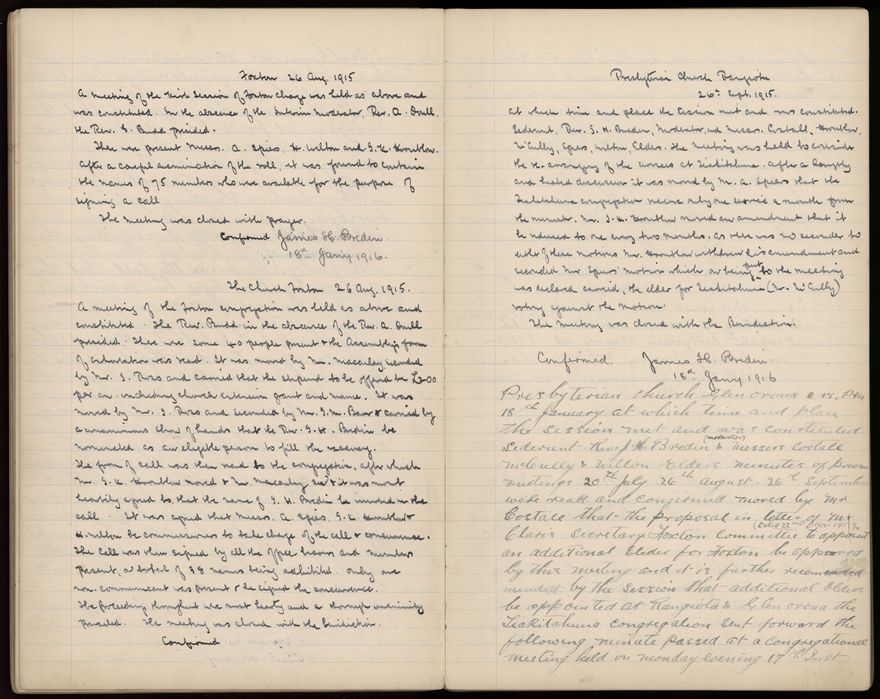 Foxton 26 Aug. 1915
A meeting of the Kirk Session of Foxton Charge was held as above and
was constituted. In the absence of the Interim Moderator, Rev. A. Doull,
the Rev. S. Budd presided.
There were present Messrs. A. Speirs, H. Wilton and G. K. Hornblow.
After a careful examination of the roll, it was found to contain
the names of 75 members who were available for the purpose of
signing a call
The meeting was closed with prayer.
Confirmed James H. Bredin.
18th Jany 1916.
The Church Foxton 26 Aug. 1915.
A meeting of the Foxton congregation was held as above and
constituted. The Rev. Budd in the absence of the Rev. A. Doull
presided. There were some 40 people present & the Assembly's form
of exhortation was read. It was moved by Mr. Macaulay seconded
by Mr. J. Ross and carried that the stipend to be offered be £200
per an. including church extension grant and manse. It was
moved by Mr. J. Ross and seconded by Mr. & carried by
a unanimous show of hands that the Rev. J. H. Bredin be
nominated as an eligible person to fill the vacancy.
The form of call was then read to the congregation, after which
Mr. G. K. Hornblow moved & Mr. Macaulay sec. & it was most
heartily agreed to that the name of J. H. Bredin be inserted in the
call. It was agreed that Messrs. A. Speirs, G. K. Hornblow &
H. Wilton be commissioners to take charge of the call & concurrence.
The Call was then signed by all the office bearers and members
present, a total of 38 names being adhibited. Only one
non-communicant was present & he signed the concurrence.
The proceedings throughout were most hearty and a thorough unanimity
prevailed. The meeting was closed with the Benediction.
Confirmed
Presbyterian Church Rangiotu
26th Sept. 1915.
at which time and place the Session met and was constituted.
Sederunt, Rev. J. H. Bredin, Moderator, and Messrs. Costall, Hornblow,
McCully, Speirs, Wilton, Elders. The meeting was held to consider
the re-arranging of the services at Tiakitahuna. After a lengthy
and heated discussion it was moved by Mr. A. Speirs that the
Tiakitahuna congregation receive only one service a month from
the minister. Mr. G. K. Hornblow moved an amendment that it
be reduced to one every two months. As there was no seconder to
either of these motions Mr. Hornblow withdrew his amendment and
seconded Mr Speirs' motion which on being put to the meeting
was declared carried, the elder for Tiakitahuna (Mr. McCully)
voting against the motion.
The meeting was closed with the Benediction.
Confirmed. James H. Bredin
18th Jany 1916
Presbyterian Church Glen Oroua 2-15. P.M
18th January at which time and place
the Session met and was constituted
Sederunt Rev J. H. Bredin (moderator) & messers Costall
McCully & Wilton Elders minutes of previous
meetings 20th July 26th August. 26th September
were read and confirmed moved by Mr
Costall that the proposal in letter of Mr
Clark Secretary Foxton Committee to appoint
an additional Elder for Foxton be approved
by this meeting and it is further recom
mended by the Session that additional Elders
be appointed at Rangiotu & Glen Oroua the
Tiakitahuna Congregation sent forward the
following minute passed at a Congregational
meeting held on monday evening 17th Inst